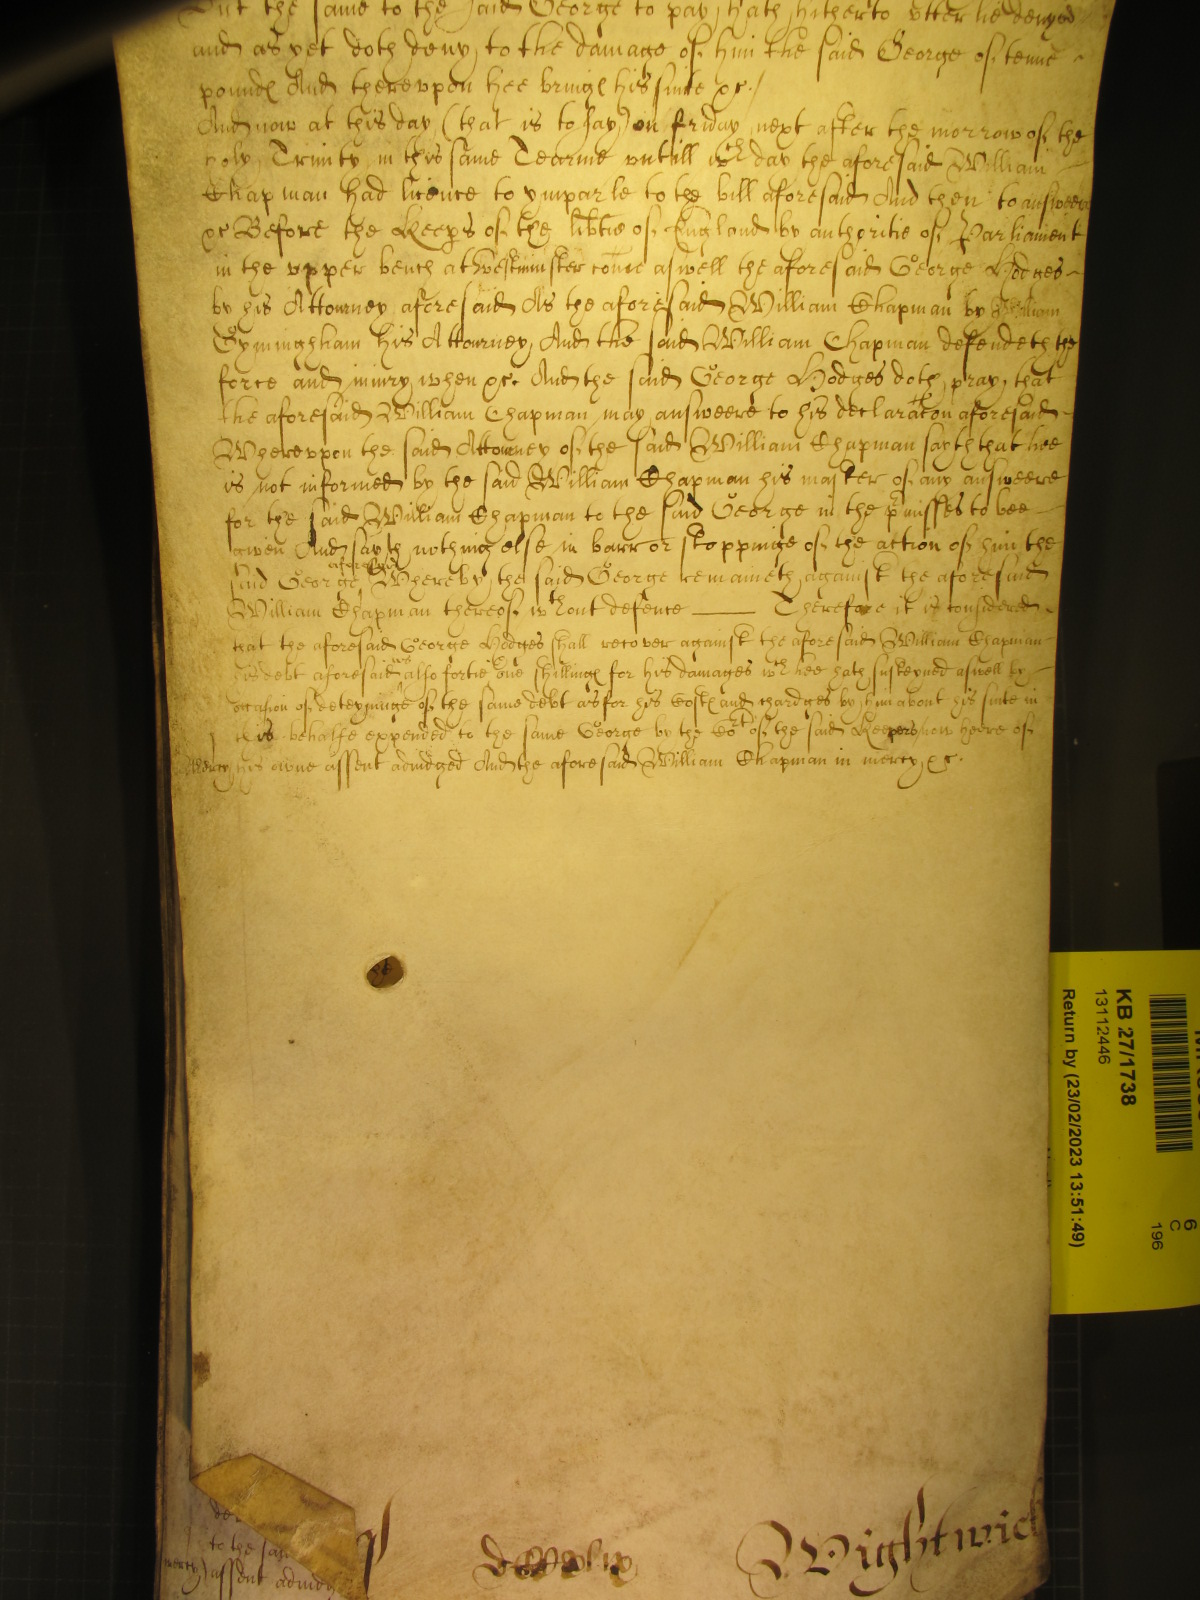 But the same to the said George to pay, hath hitherto utterlie denyed
and as yet doth deny, to the damage of him the said George of tenne
pounds And thereupon hee brings his suite &c./
And now at this day (that is to say) on friday next after the morrow of the
holy Trinity in this same Tearme untill wch day the aforesaid William
Chapman had licence to ymparle to the bill aforesaid And then to answeer
&c Before the Keeps of the libtie of England by authoritie of Parliament
in the upper bench at Westminster come aswell the aforesaid George Hodges
by his Attourney aforesaid As the aforesaid William Chapman by William
Gyminghham his Attourney, And the said William Chapman defendeth the
force and iniury when &c. And the said George Hodges doth pray, that
the aforesaid William Chapman may answeere to his declaracon aforesaid
Whereupon the said Attourney of the said William Chapman sayth that hee
is not informed by the said William Chapman his master of any answeere
for the said William Chapman to the said George in the pmisses to bee
given And sayth nothing else in barr or stoppinge of the action of him the
said George aforesaid Whereby the said George remaineth against the aforesaid
William Chapman thereof wthout defence —— Therefore it is considered
that the aforesaid George Hodges shall recover against the aforesaid William Chapman
his debt aforesaid also fortie one shillings for his damages wch hee hath susteyned aswell by
occasion of deteyninge of the same debt as for his costs and chardges by him about his suite in
this behalfe expended to the same George by the Cort of the said Keepers now heere of
Mercy his owne assent adiudged And the aforesaid William Chapman in mercy &c.
to the sa
mercy) assent adiudg
Wightwick
KB 27/1738
13112446
Return by (23/02/2023 13:51:49)
6
C
196